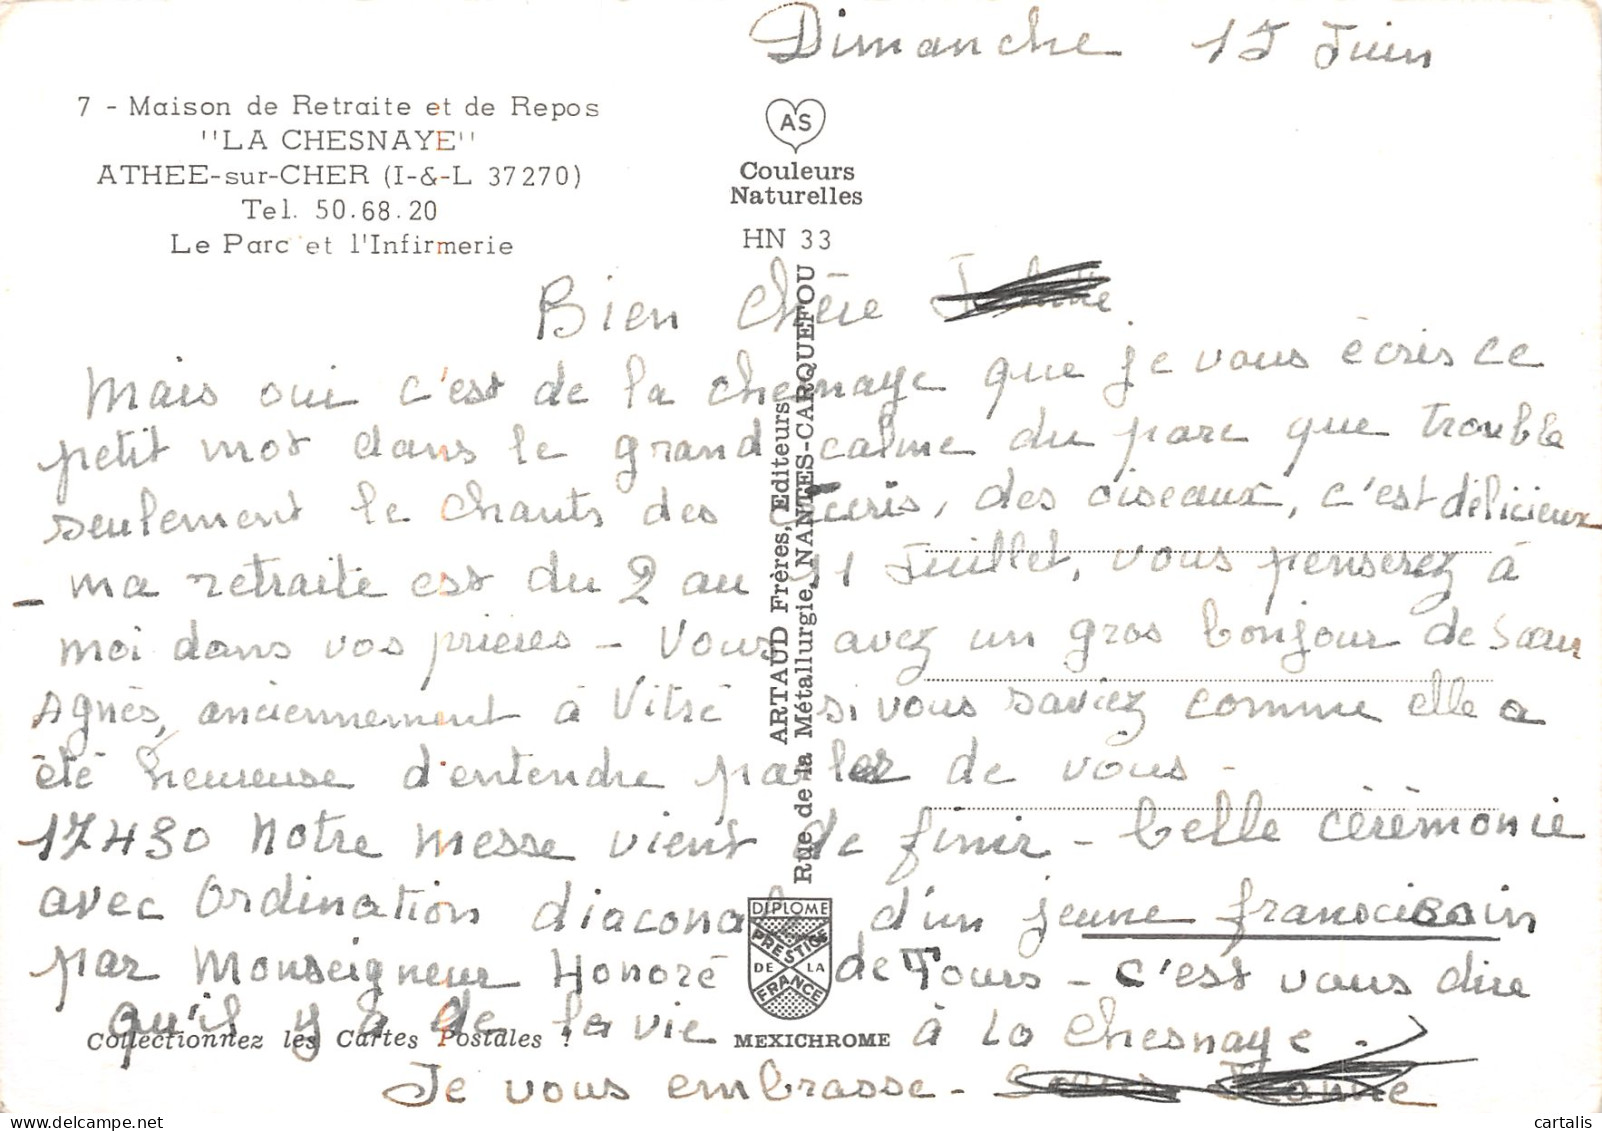 Dimanche 15 Juin
7 - Maison de Retraite et de Repos
"LA CHESNAYE"
ATHEE-sur-CHER (I-&-L 37270)
Tel. 50.68.20
Le Parc et l'Infirmerie
AS
Couleurs
Naturelles
HN 33
ARTAUD Frères, Editeurs
Rue de la Métallurgie, NANTES-CARQUEFOU
Bien chère
Mais oui c'est de la chesnaye que je vous écris ce
petit mot dans le grand calme du parc que trouble
seulement le chants des, des oiseaux, c'est délicieux
ma retraite est du 2 au 11 Juillet, vous penserez à
moi dans vos prières - Vous avez un gros bonjour de Sœur
Agnès, anciennement à Vitré si vous saviez comme elle a
été heureuse d'entendre parler de vous -
17H30 Notre messe vient de finir - belle cérémonie
avec Ordination diaconale d'un jeune franciscain
par Monseigneur Honoré de Tours - c'est vous dire
qu'il y a de la vie à La Chesnaye.
Je vous embrasse -
DIPLOME
PRESTIGE
DE LA
FRANCE
Collectionnez les Cartes Postales !
MEXICHROME
cartalis
delcampe.net